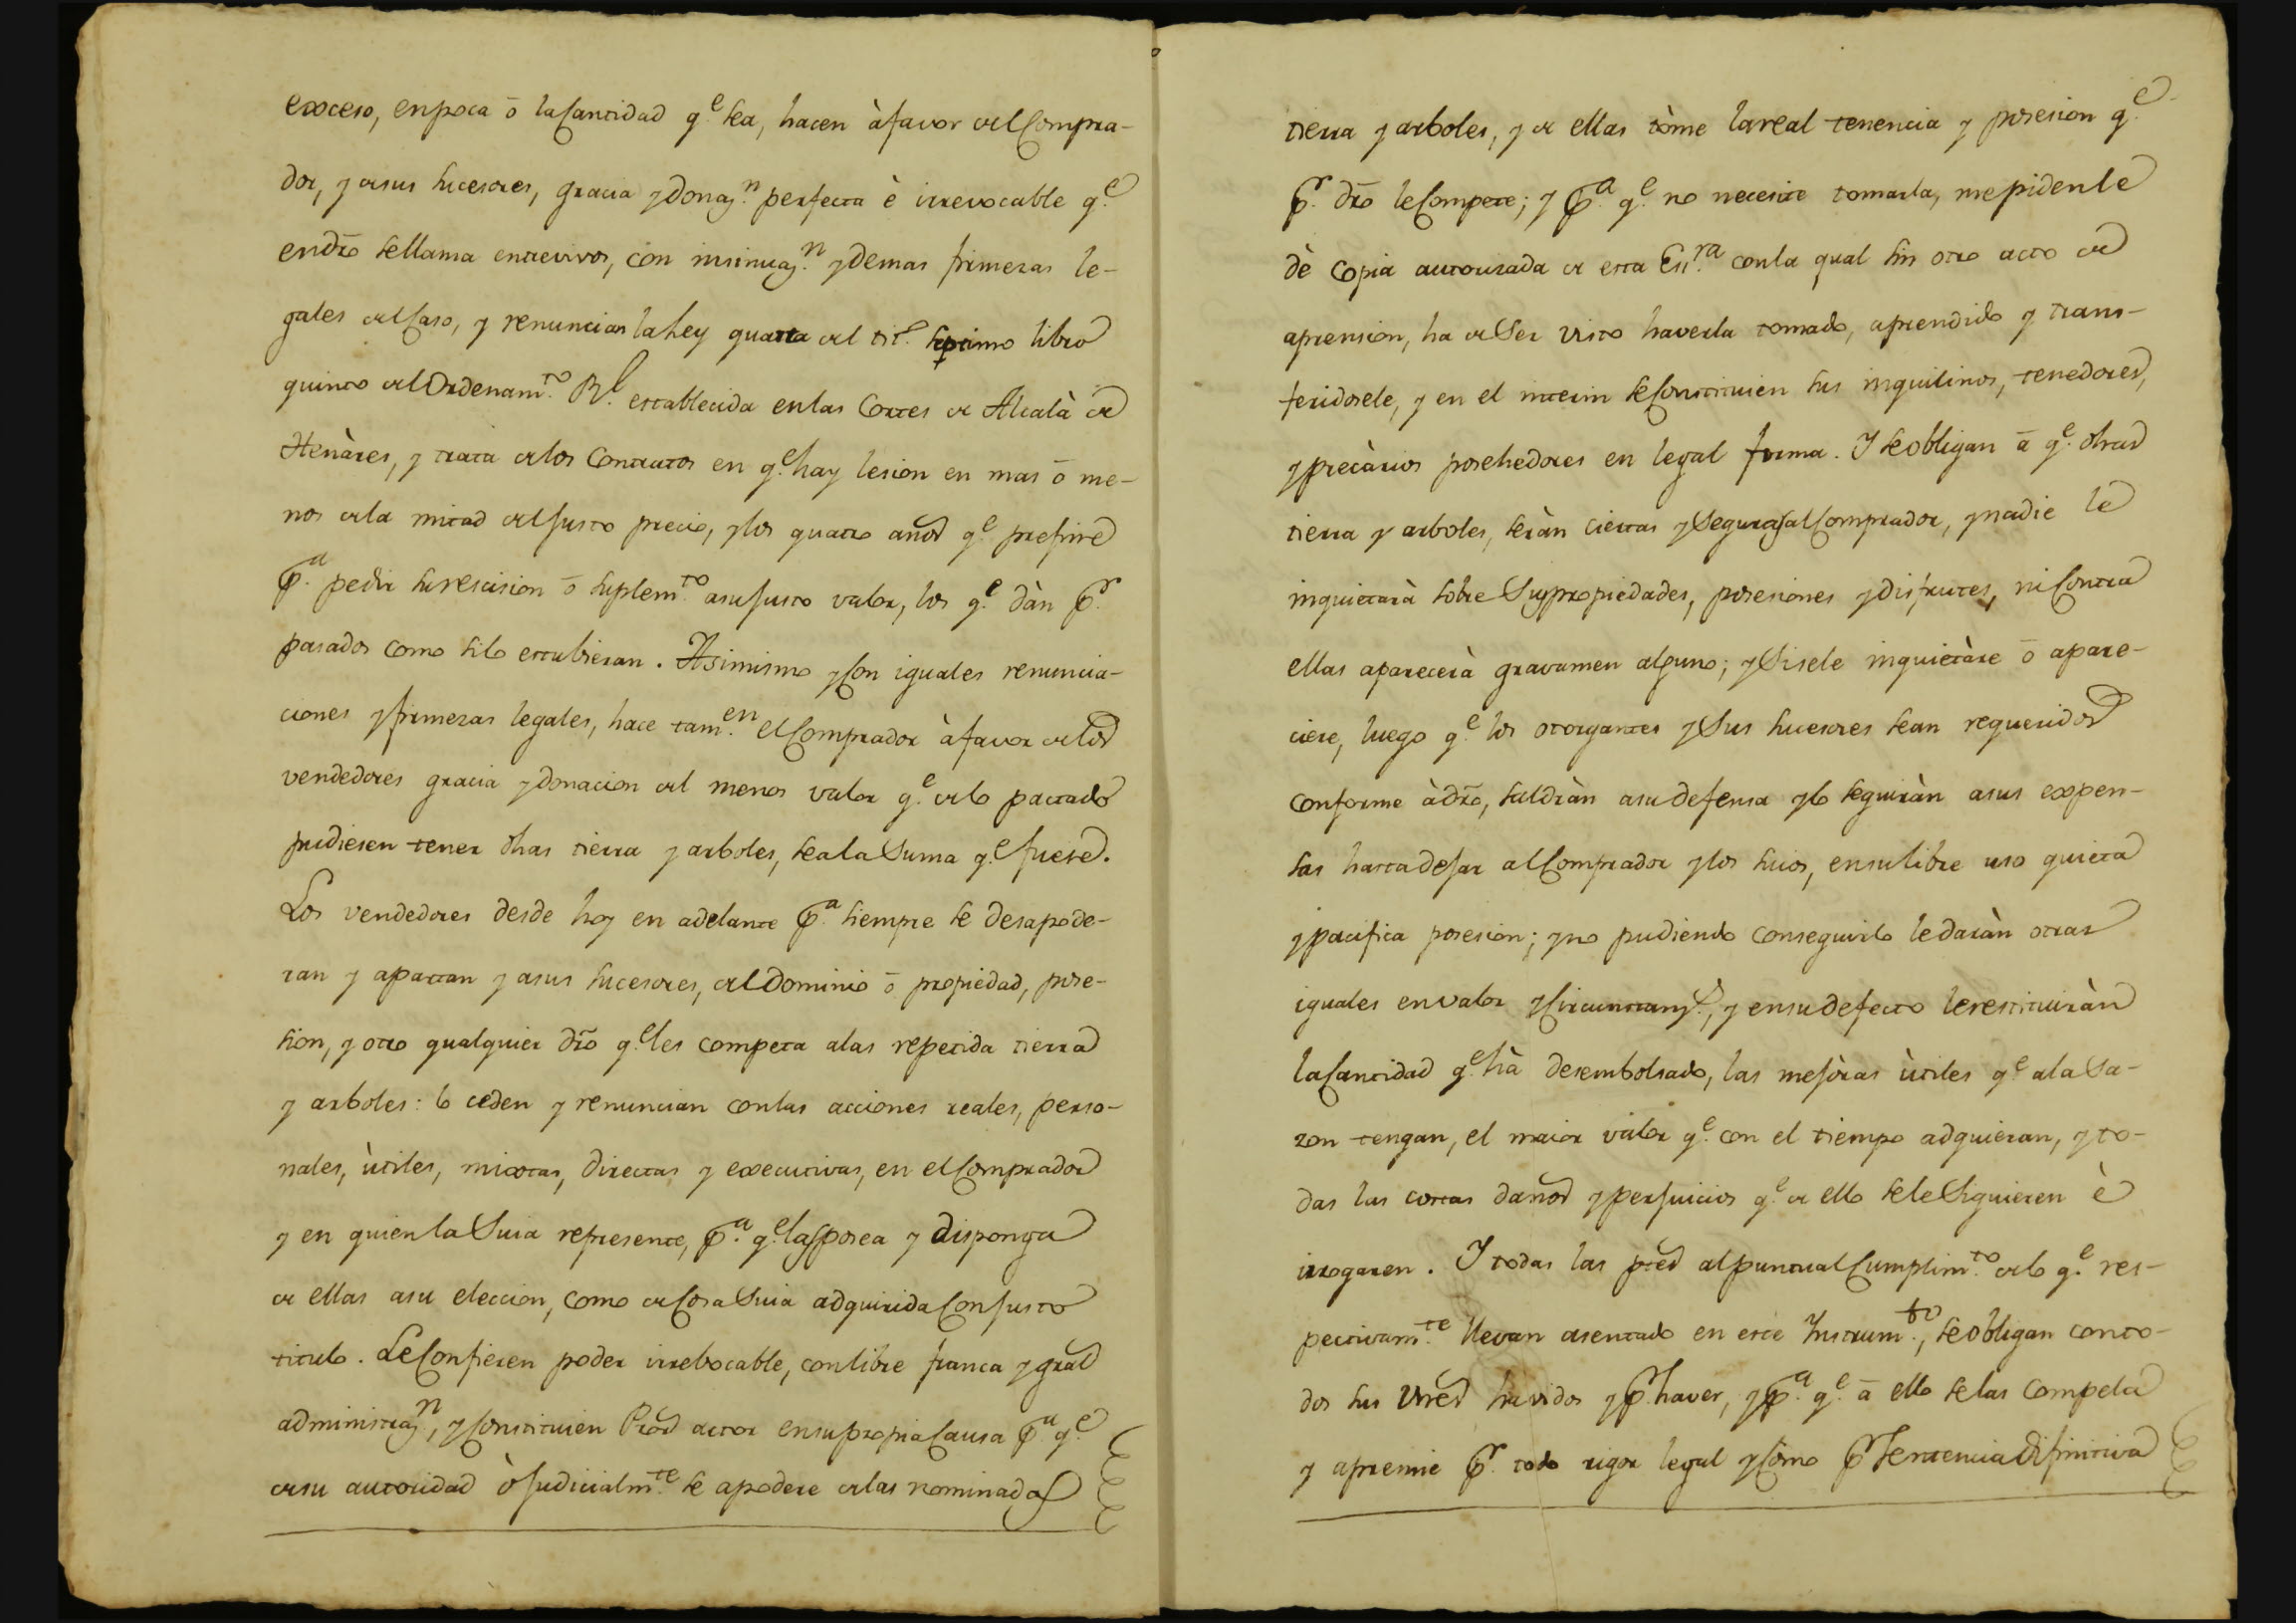 exceso, enpoca ō la Cantidad q.e sea, hacen à favor del Compra-
dor, y desus sucesores, gracia y donaz.n perfecta è irrevocable q.e
endr̃o sellama entrevivos, con insinuaz.n y demas firmezas le-
gales del Caso, y renuncian la Ley quarta del tit.o septimo libro
quinto del Ordenam.to R.l establecida en las Cortes de Alcalà de
Henàres, y trata de los Contratos en q.e hay lesion en mas ō me-
nos de la mitad del justo precio, y los quatro años q.e prefine
p.a pedir su rescision ō suplem.to asu justo valor, los q.e dàn p.r
pasados como si lo estubieran. Asimismo y Con iguales renuncia-
ciones y firmezas legales, hace tam.en el Comprador à favor de los
vendedores gracia y donacion del menos valor q.e de lo pactado
pudiesen tener dhas tierra y arboles, sea la Suma q.e fuese.
Los vendedores desde hoy en adelante p.a siempre se desapode-
ran y apartan y asus sucesores, del Dominio ō propiedad, pose-
sion, y otro qualquier dr̃o q.e les competa alas repetida tierra
y arboles: lo ceden y renuncian con las acciones reales, perso-
nales, ùtiles, mixtas, directas y executivas, en el Comprador
y en quien la Suia represente, p.a q.e las posea y disponga
de ellas asu eleccion, como de Cosa Suia adquirida Con justo
titulo. Le Confieren poder irrebocable, con libre franca y gral
administraz.n, y Constituien Pror actor en su propia Causa p.a q.e
de su autoridad ò Judicialm.te se apodere de las nominadas
tierra y arboles, y de ellas tòme la real tenencia y posesion q.e
p.r dr̃o le Compete; y p.a q.e no necesite tomarla, me piden le
dè copia autorisada de esta Ess.ra con la qual sin otro acto de
aprension, ha de Ser visto haverla tomado, aprendido y trans-
feridosele, y en el interin se Constituien sus inquilinos, tenedores,
y precàrios posehedores en legal forma. Y se obligan ā q.e dhas
tierra y arboles, seràn ciertas y Seguras al Comprador, y nadie le
inquietarà sobre Su propiedades, posesiones y disfrutes, ni Contra
ellas aparecerà gravamen alguno; y Si sele inquietàre ō apare-
ciere, luego q.e los otorgantes y Sus sucesores sean requeridos
conforme àdr̃o, saldràn asu defensa y lo seguiràn asus expen-
sas hasta dejar al Comprador y los suios, en su libre uso quieta
y pacifica posesion; y no pudiendo conseguirlo le daràn otras
iguales en valor y Circunstanz.s, y en su defecto le restituiràn
la Cantidad q.e hà desembolsado, las mejòras ùtiles q.e ala Sa-
zon tengan, el maior valor q.e con el tiempo adquieran, y to-
das las costas daños y perjuicios q.e de ello se le Siguieren è
irrogaren. Y todas las ptes al puntual Cumplim.to de lo q.e res-
pectivam.te llevan asentado en este Instrum.to, se obligan con to-
dos sus vnes havidos y p.r haver, y p.a q.e ā ello se las compela
y apremie p.r todo rigor legal y Como p.r Sentencia Difinitiva